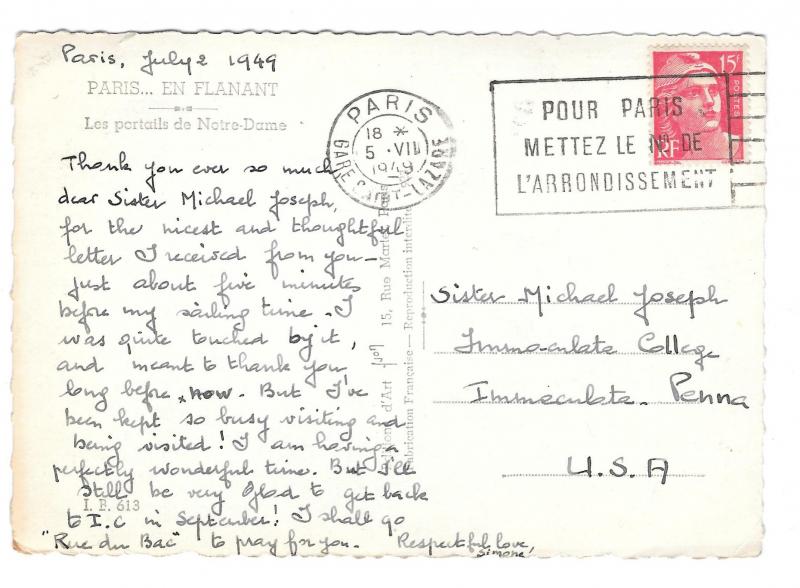 Paris, July 2 1949
PARIS... EN FLANANT
Les portails de Notre-Dame
Thank you ever so much
dear Sister Michael Joseph,
for the nicest and thoughtful
letter I received from you—
just about five minutes
before my sailing time. I
was quite touched by it,
and meant to thank you
long before now. But I've
been kept so busy visiting and
being visited! I am having a
perfectly wonderful time. But I'll
still be very glad to get back
to I.C in September! I shall go
"Rue du Bac" to pray for you. Respectful love,
Simone
I. P. 613
PARIS
18 *
5 · VII
1949
GARE SAINT-LAZARE
POUR PARIS
METTEZ LE No DE
L'ARRONDISSEMENT
15f
POSTES
RF
d'Art 15, Rue Martel, Paris
Fabrication Française — Reproduction interdite
Sister Michael Joseph
Immaculate College
Immaculata. Penna
U.S.A